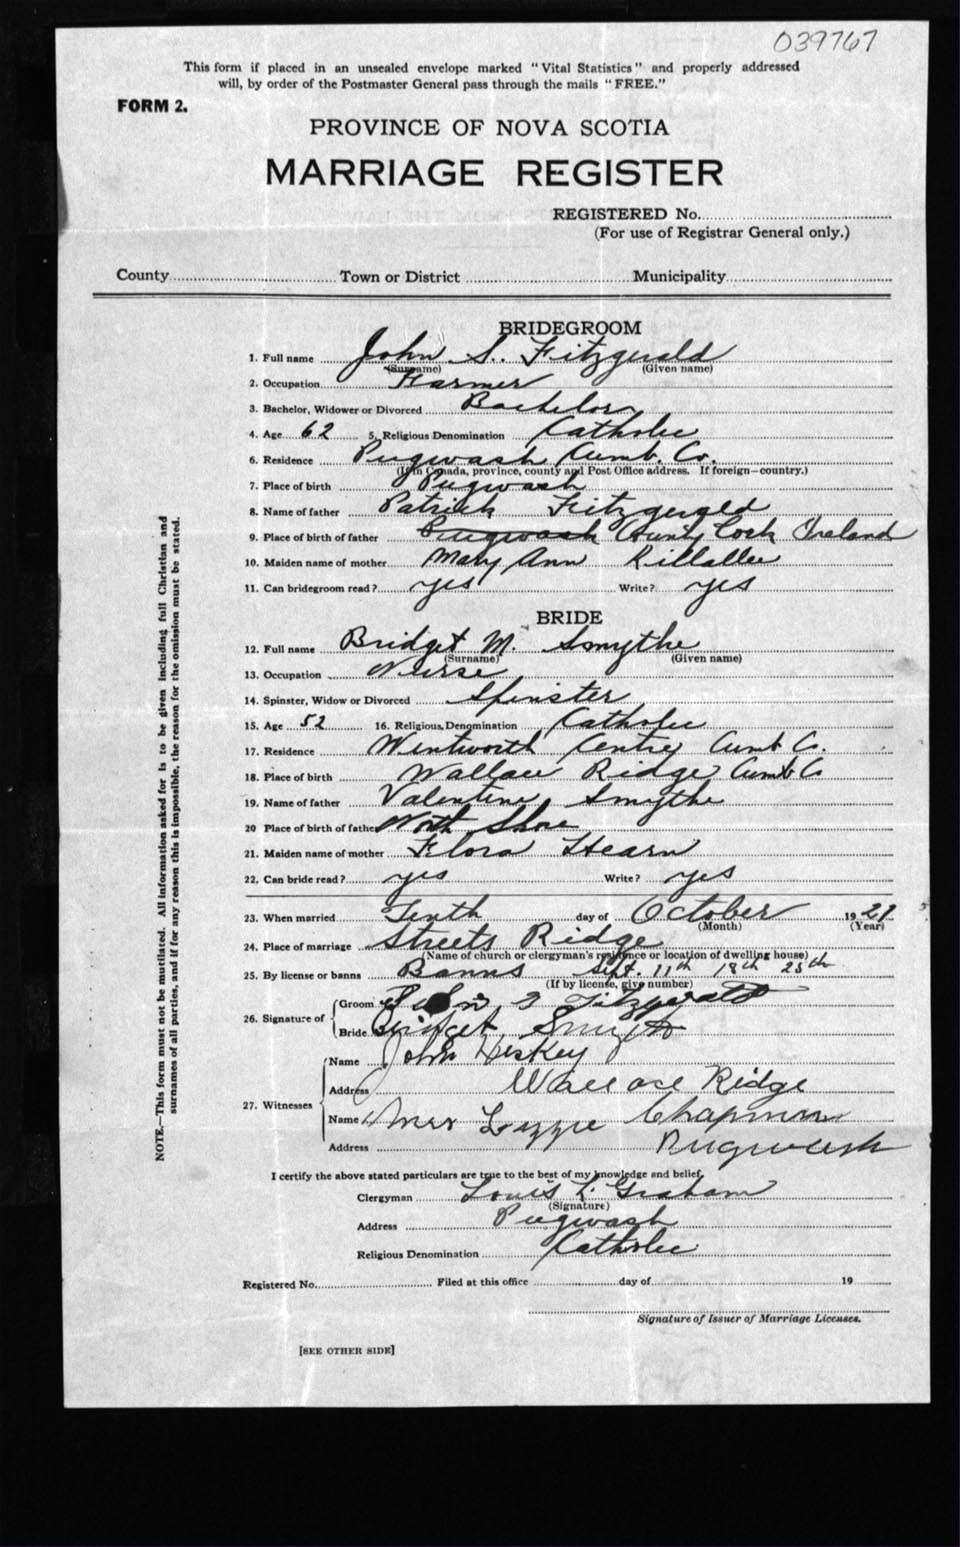 039767
This form if placed in an unsealed envelope marked "Vital Statistics" and properly addressed
will, by order of the Postmaster General pass through the mails "FREE."
FORM 2.
PROVINCE OF NOVA SCOTIA
MARRIAGE REGISTER
REGISTERED No.
(For use of Registrar General only.)
County Town or District Municipality
BRIDEGROOM
1. Full name John S. Fitzgerald
(Surname) (Given name)
2. Occupation Farmer
3. Bachelor, Widower or Divorced Bachelor
4. Age 62 5. Religious Denomination Catholic
6. Residence Pugwash Cumb. Co.
(If in Canada, province, county and Post Office address. If foreign—country.)
7. Place of birth Pugwash
8. Name of father Patrick Fitzgerald
9. Place of birth of father Pugwash County Cork Ireland
10. Maiden name of mother Mary Ann Killallee
11. Can bridegroom read? yes Write? yes
BRIDE
12. Full name Bridget M. Smythe
(Surname) (Given name)
13. Occupation Nurse
14. Spinster, Widow or Divorced Spinster
15. Age 52 16. Religious Denomination Catholic
17. Residence Wentworth Centre Cumb Co.
18. Place of birth Wallace Ridge Cumb Co
19. Name of father Valentine Smythe
20 Place of birth of father North Shore
21. Maiden name of mother Flora Hearn
22. Can bride read? yes Write? yes
23. When married Tenth day of October 1927
(Month) (Year)
24. Place of marriage Streets Ridge
(Name of church or clergyman's residence or location of dwelling house)
25. By license or banns Banns Sept. 11th 18th 25th
(If by license, give number)
26. Signature of Groom John Fitzgerald
Bride Bridget Smyth
27. Witnesses Name John Heskey
Address Wallace Ridge
Name Mrs Lizzie Chapman
Address Pugwash
I certify the above stated particulars are true to the best of my knowledge and belief,
Clergyman Louis L. Graham
(Signature)
Address Pugwash
Religious Denomination Catholic
Registered No. Filed at this office day of 19
Signature of Issuer of Marriage Licenses.
[SEE OTHER SIDE]
NOTE.—This form must not be mutilated. All information asked for is to be given including full Christian and
surnames of all parties, and if for any reason this is impossible, the reason for the omission must be stated.